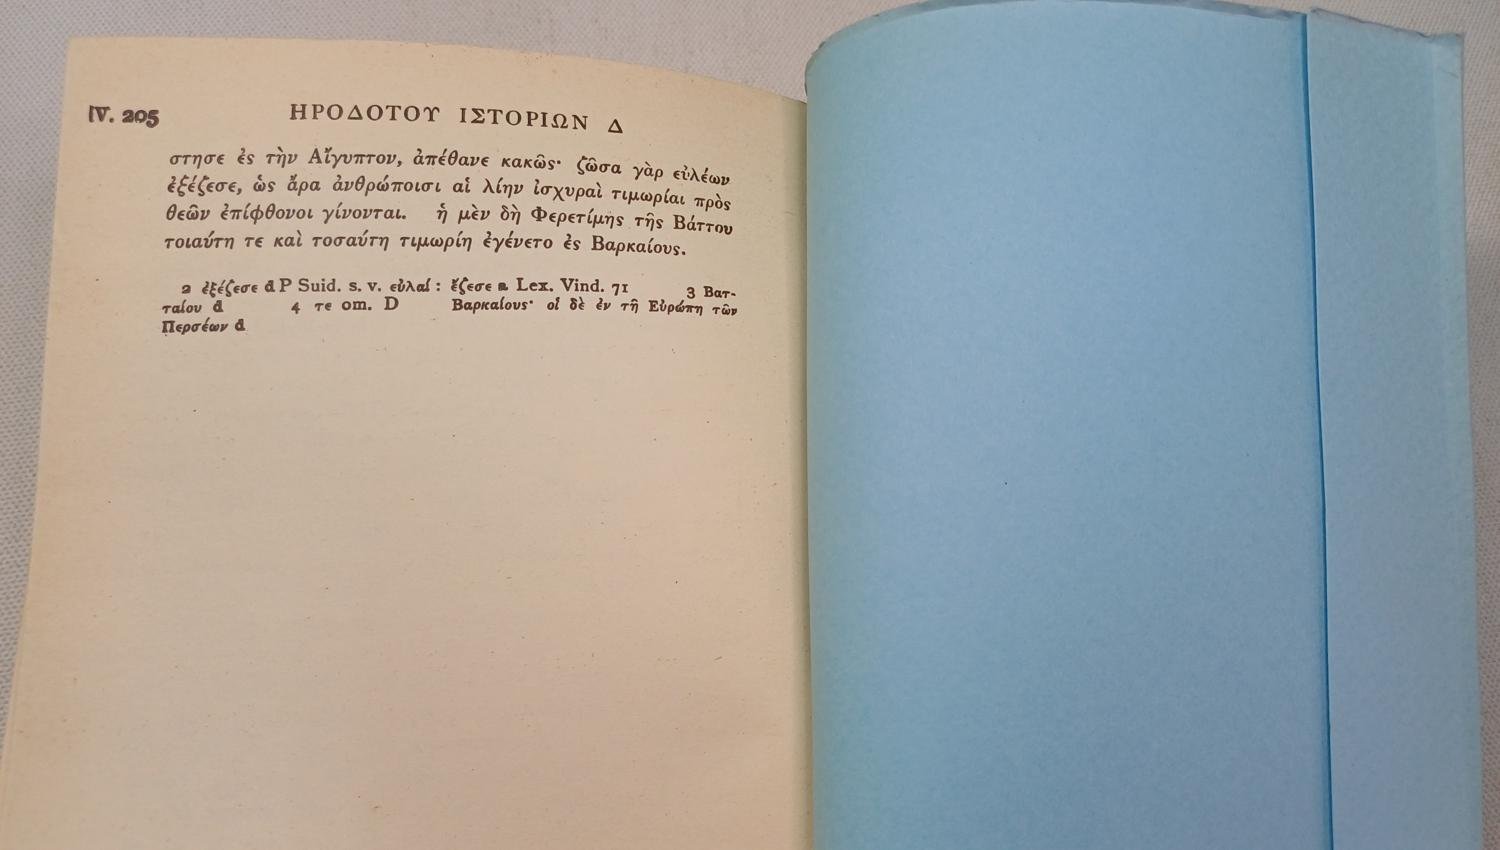 IV. 205 ΗΡΟΔΟΤΟΥ ΙΣΤΟΡΙΩΝ Δ
στησε ἐς τὴν Αἴγυπτον, ἀπέθανε κακῶς· ζῶσα γὰρ εὐλέων
ἐξέζεσε, ὡς ἄρα ἀνθρώποισι αἱ λίην ἰσχυραὶ τιμωρίαι πρὸς
θεῶν ἐπίφθονοι γίνονται. ἡ μὲν δὴ Φερετίμης τῆς Βάττου
τοιαύτη τε καὶ τοσαύτη τιμωρίη ἐγένετο ἐς Βαρκαίους.
2 ἐξέζεσε d P Suid. s. v. εὐλαί : ἔζεσε a Lex. Vind. 71 3 Βατ-
ταίου d 4 τε om. D Βαρκαίους· οἱ δὲ ἐν τῇ Εὐρώπῃ τῶν
Περσέων d